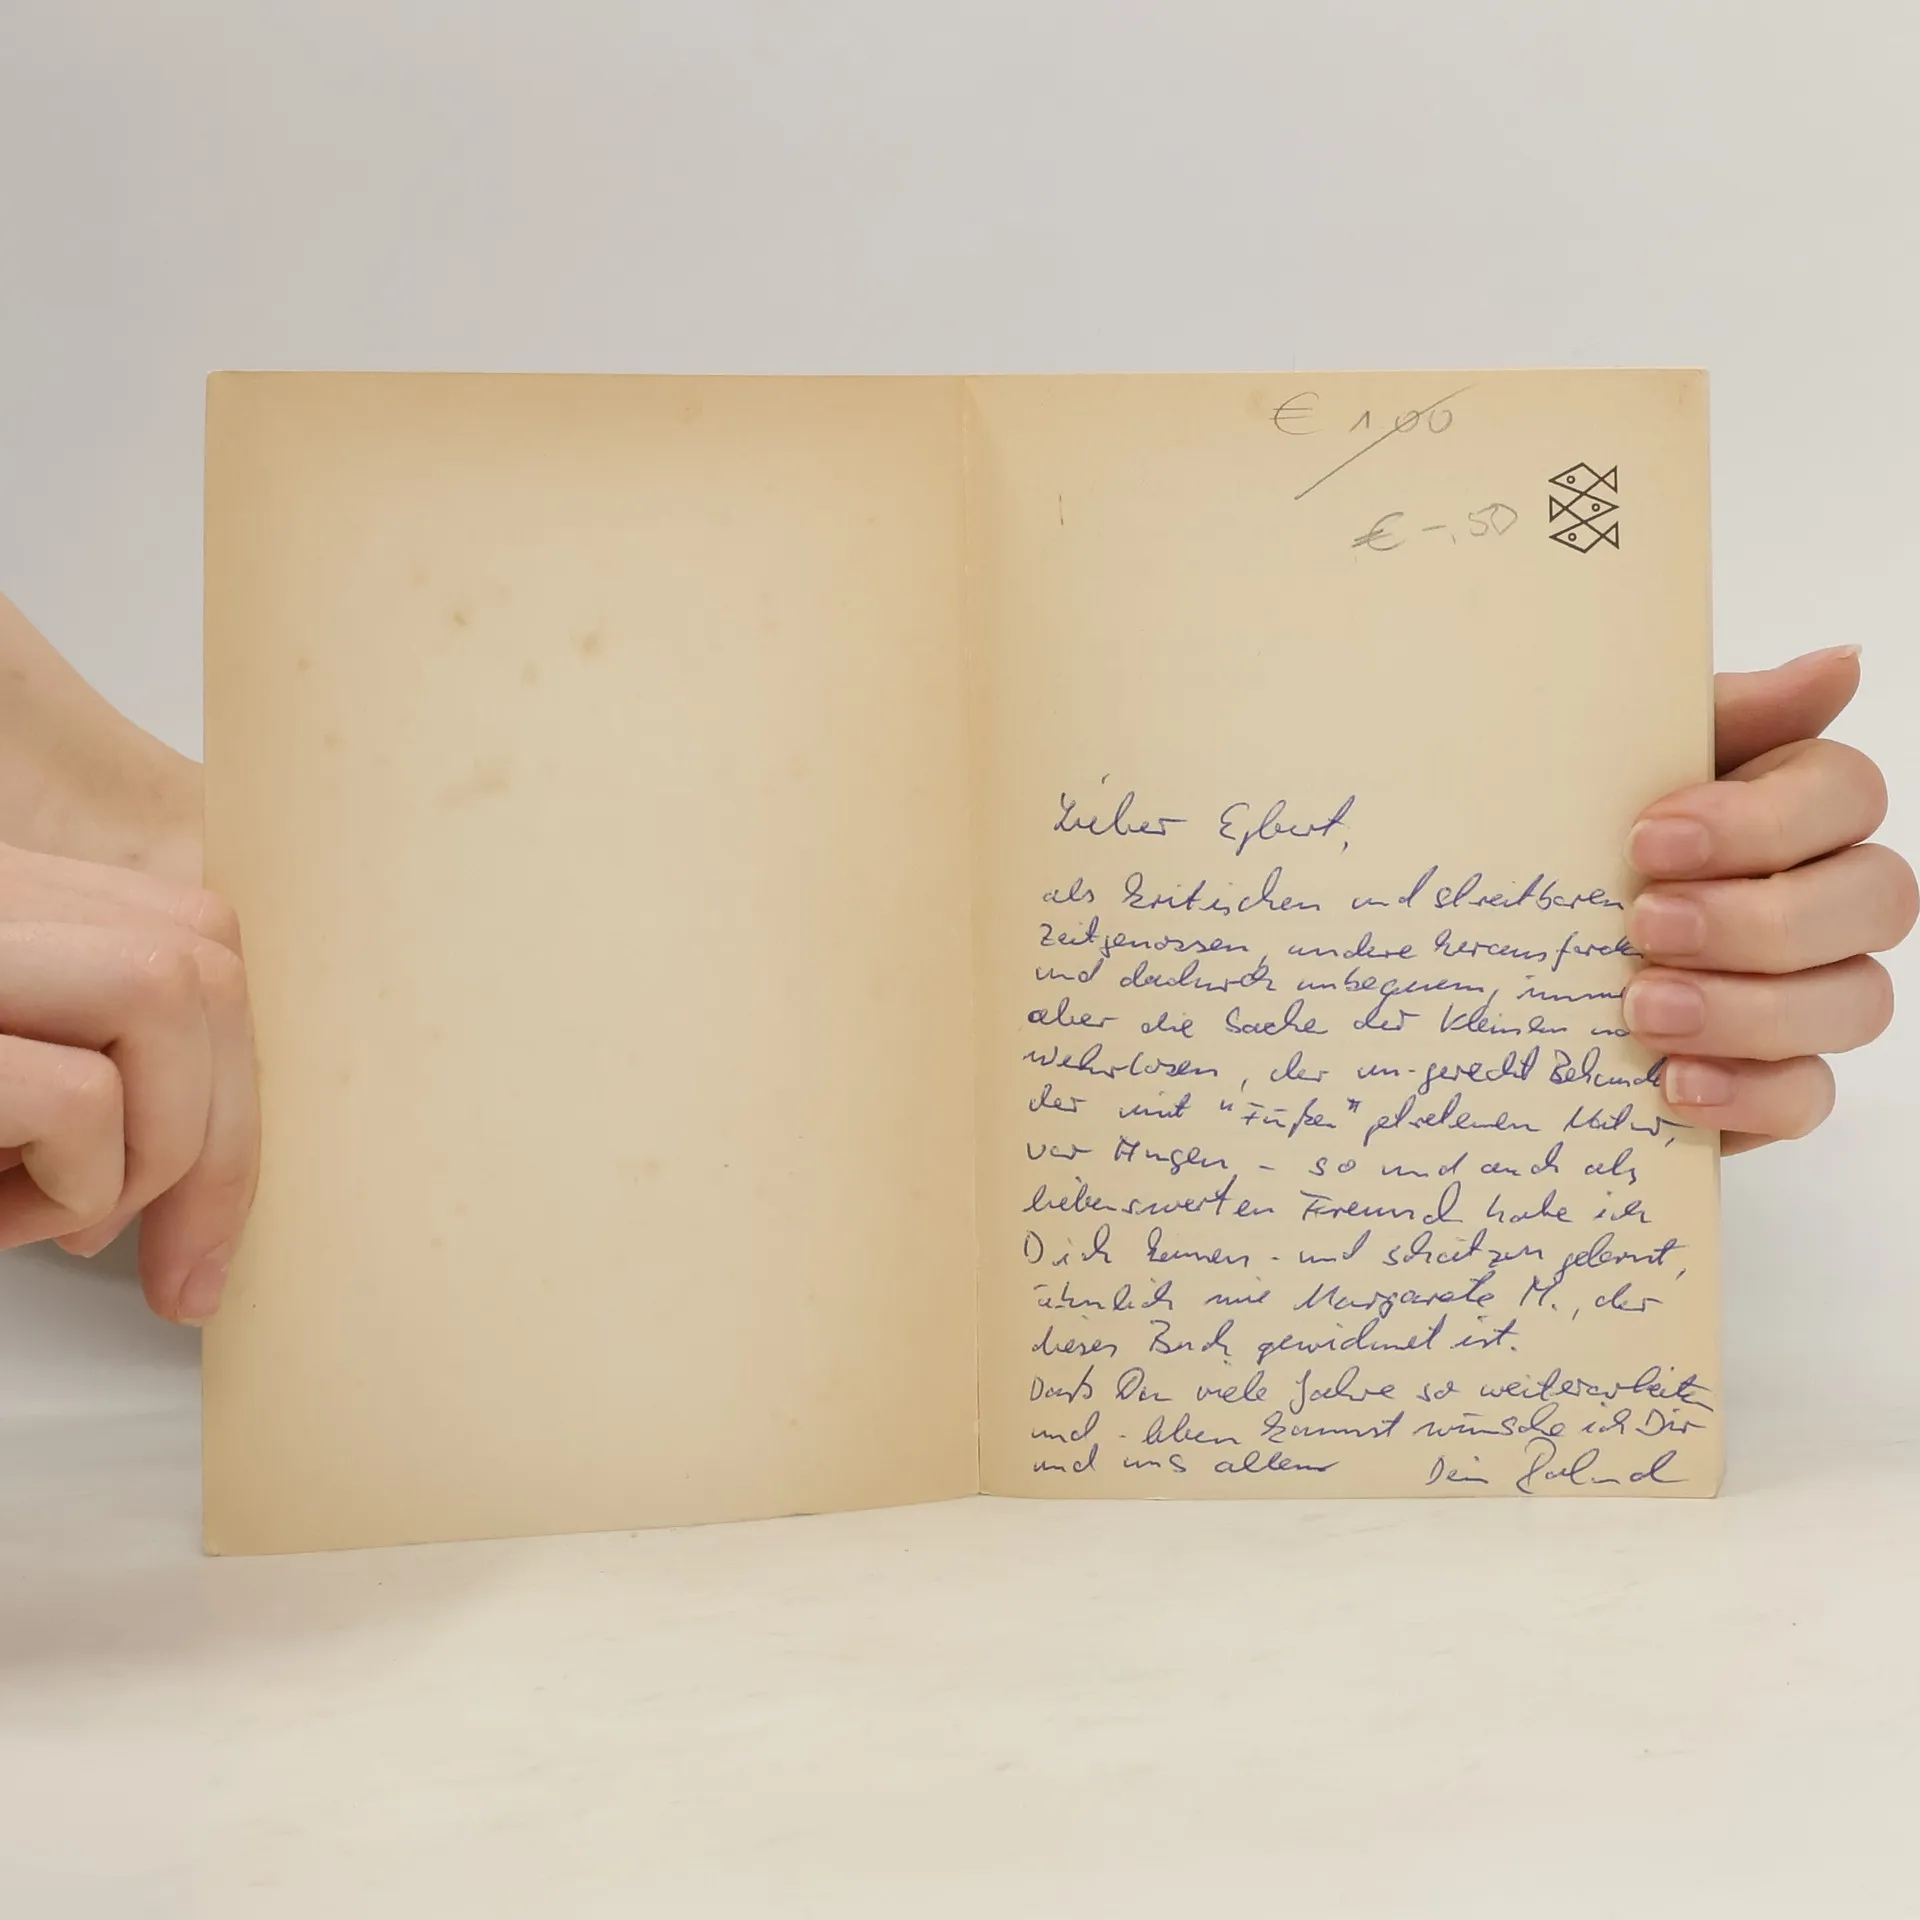 € 1.00
€ -.50
Lieber Egbert,
als kritischen und streitbaren
Zeitgenossen, andere herausforde
und dadurch unbequem, imme
aber die Sache der Kleinen
Wehrlosen, der un-gerecht Behande
der mit "Füßen" getretenen Natur,
vor Augen, - so und auch als
liebenswerten Freund habe ich
Dich kennen - und schätzen gelernt,
ähnlich wie Margarete M., der
dieses Buch gewidmet ist.
Daß Du viele Jahre so weiterarbeiten
und - leben kannst wünsche ich Dir
und uns allen Dein Roland